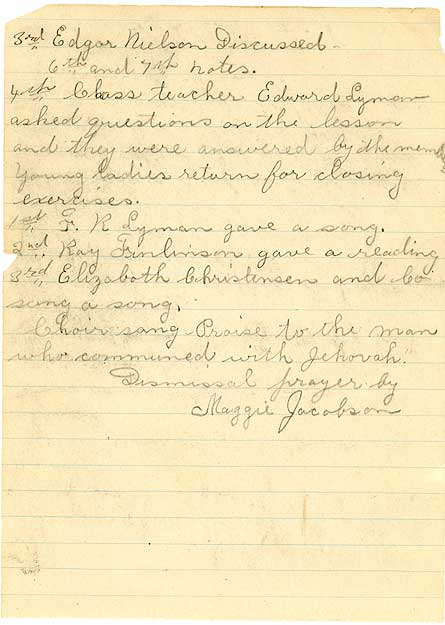 3rd Edgar Nielson Discussed
6th and 7th notes.
4th Class teacher Edward Lyman
asked questions on the lesson
and they were answered by the mem
Young ladies return for closing
exercises.
1st F. R Lyman gave a song.
2nd Ray Finlinson gave a reading
3rd Elizabeth Christensen and Co
sang a song.
Choir sang Praise to the man
who communed with Jehovah."
Dismissal prayer by
Maggie Jacobson